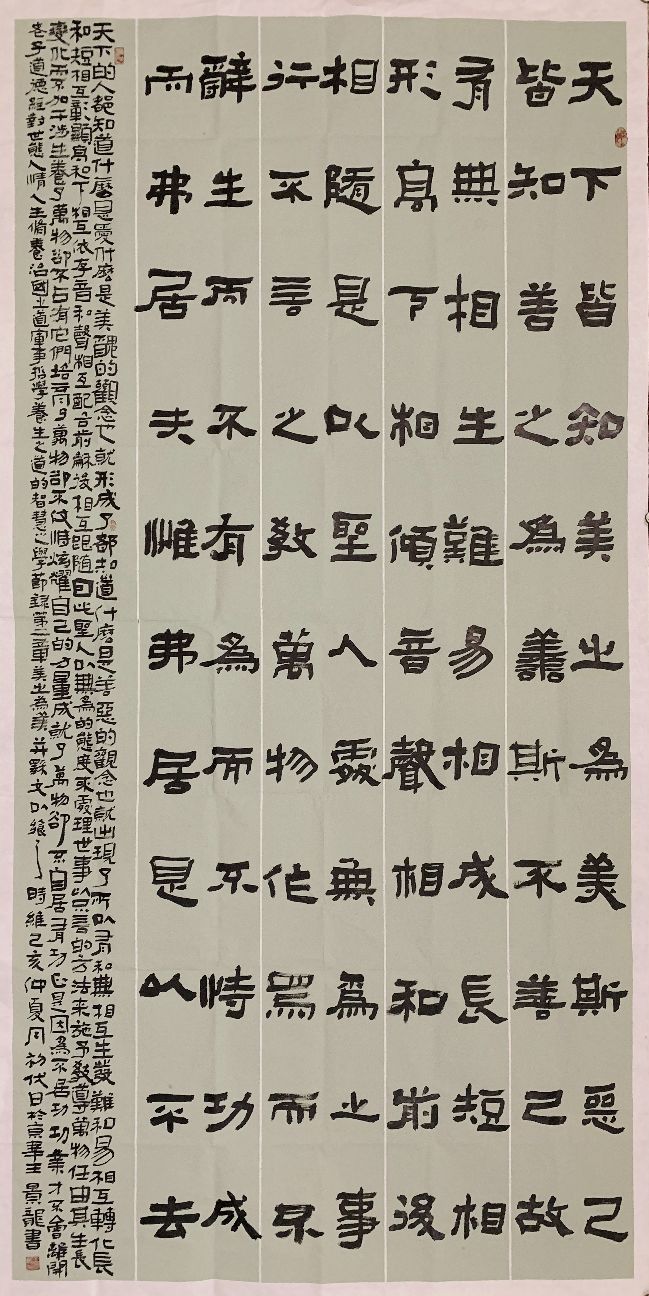 天下皆知美之為美斯惡已
皆知善之為善斯不善已故
有無相生難易相成長短相
形高下相傾音聲相和前後
相隨是以聖人處無為之事
行不言之教萬物作焉而不
辭生而不有為而不恃功成
而弗居夫惟弗居是以不去
天下的人都知道什麼是愛什麼是美醜的觀念也就形成了都知道什麼是善惡的觀念也就出現了所以有和無相互生發難和易相互轉化長
和短相互彰顯高和下相互依存音和聲相互配合前和後相互跟隨因此聖人以無為的態度來處理世事以的方法來施予教導萬物任由其生長
變化而不加干涉生養了萬物卻不占有它們培育了萬物卻不仗恃炫耀自己的力量成就了萬物卻不自居有功正是因為不居功功業才不會離開
老子道德經對世態人情人生脩養治國之道軍事哲學養生之道的智慧之學節錄第二章美之為美并文以時維己亥仲夏月初伏日於京華王景龍書